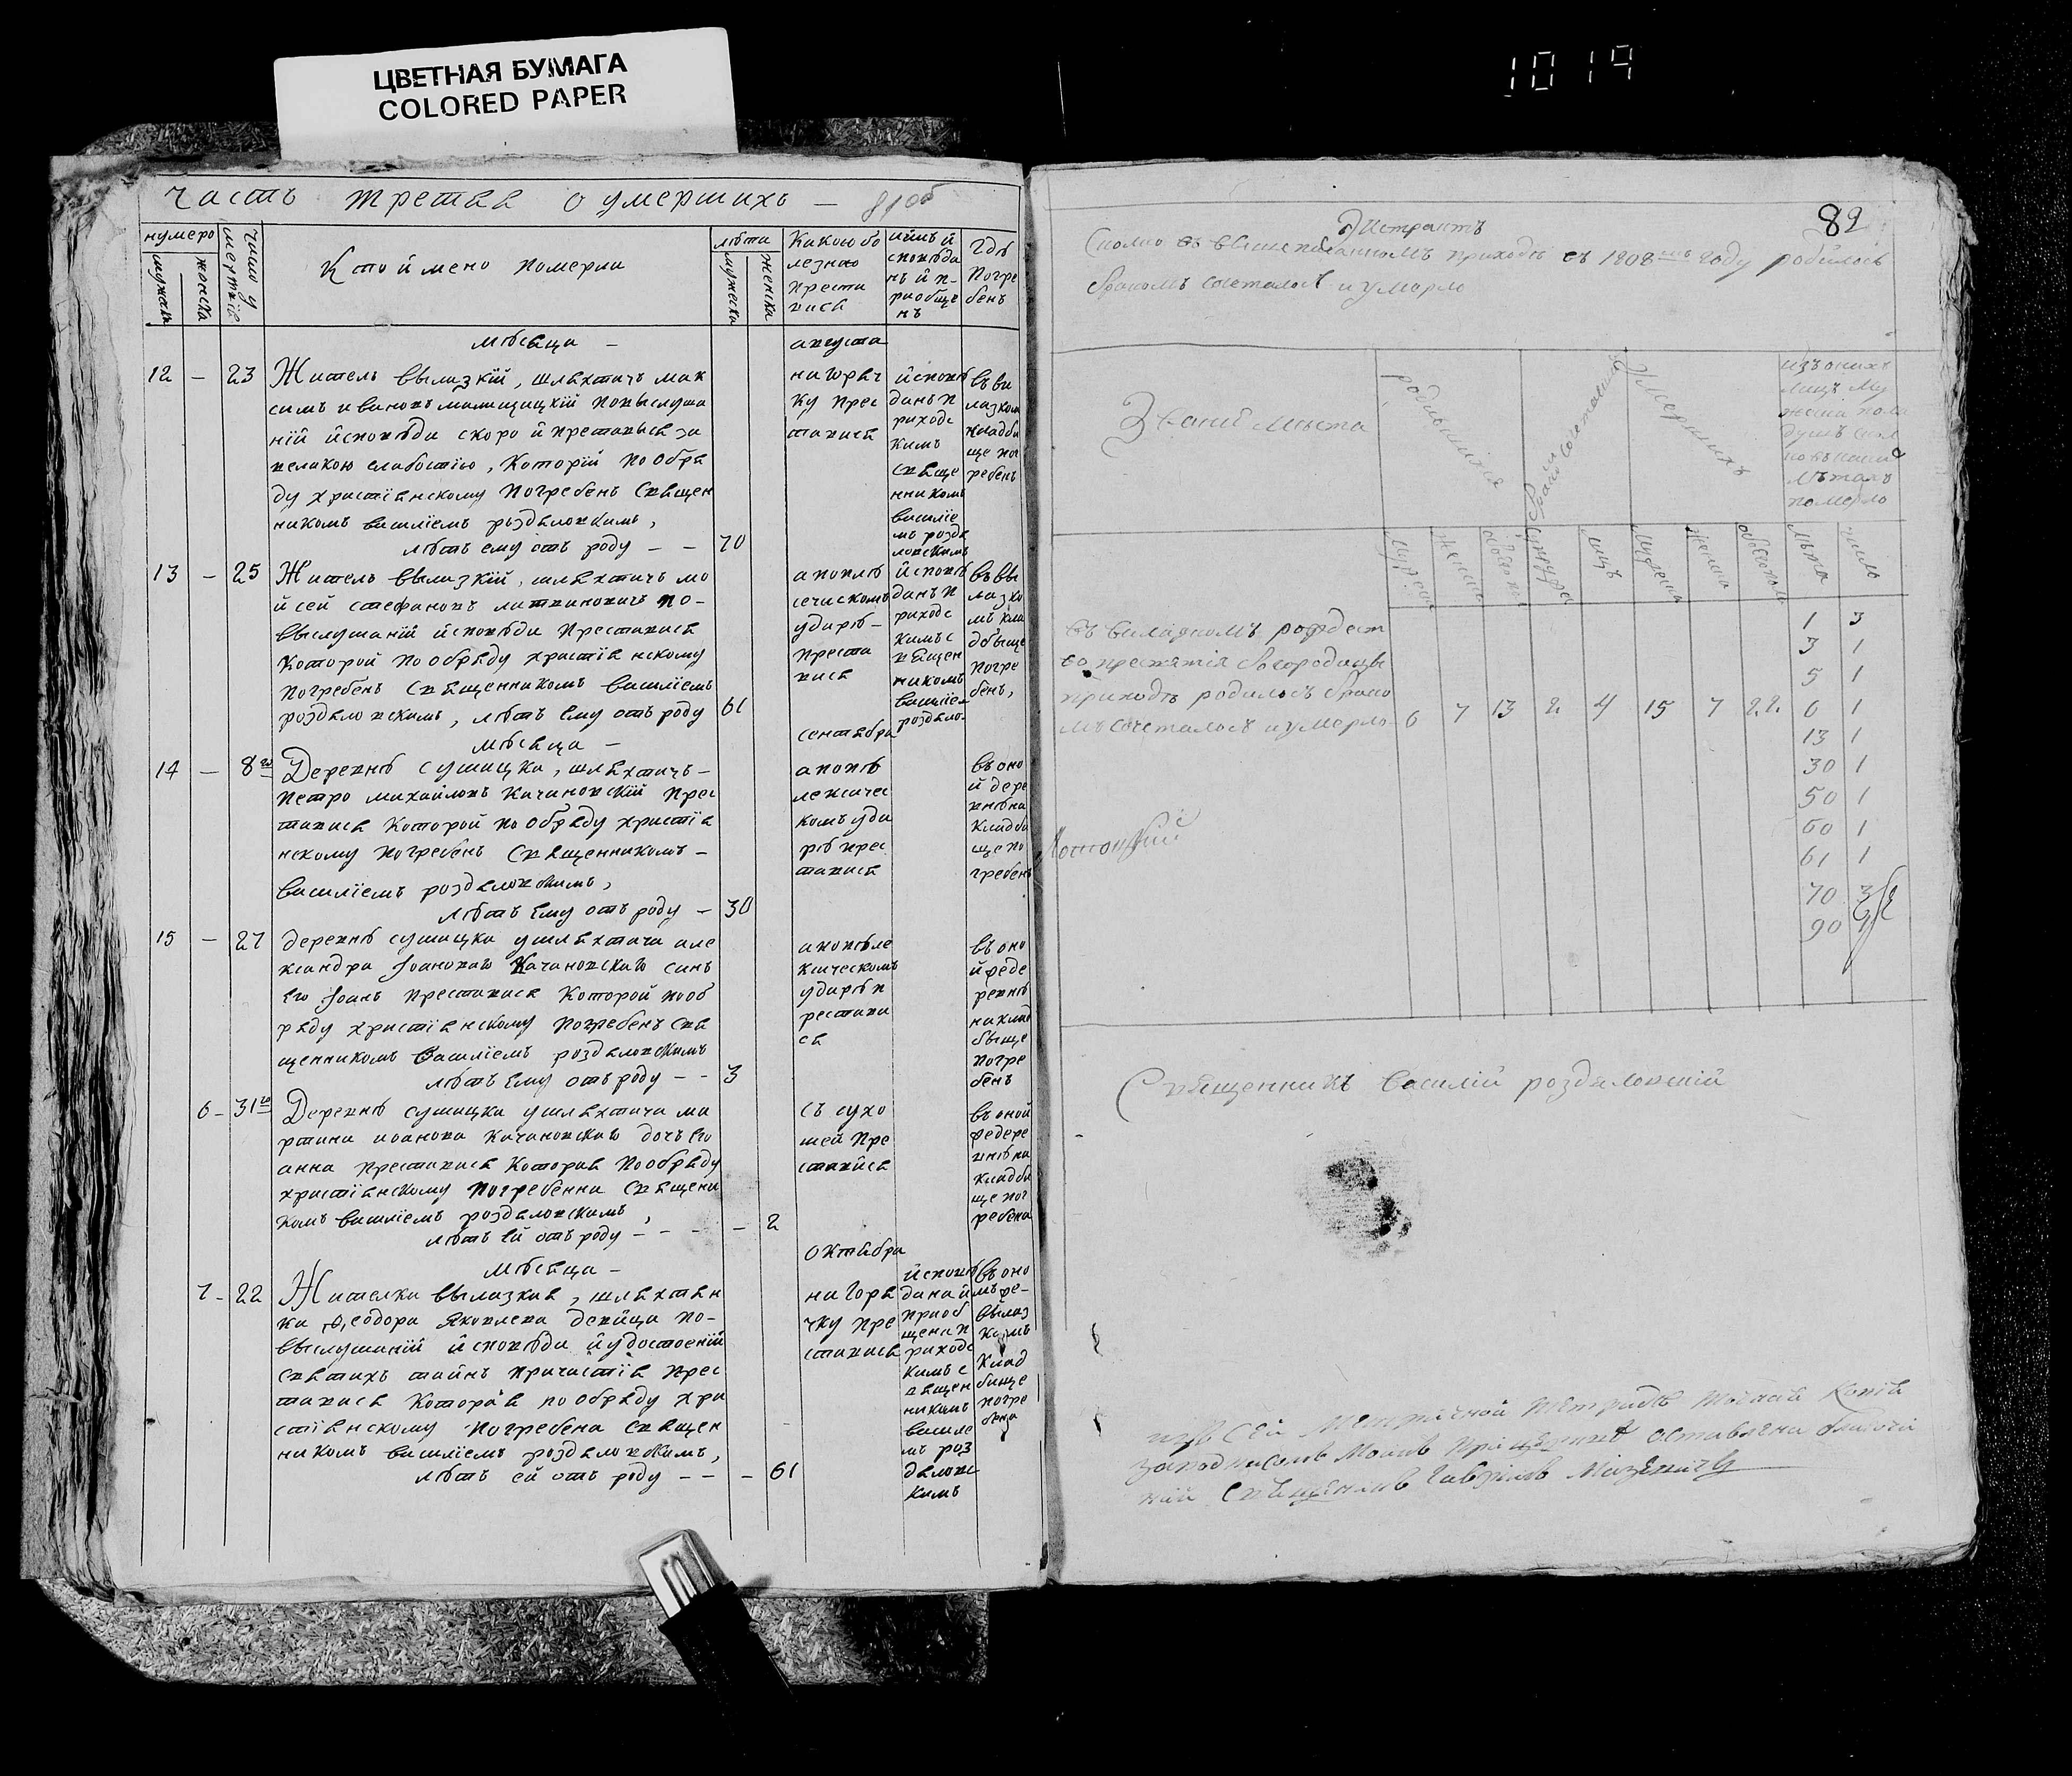 ЦВЕТНАЯ БУМАГА
COLORED PAPER
1019
Часть третяя о умершихъ — 81об
нумеро
мужеска
женска
число умертвія
Кто й мено померли
лѣта
мужеска
женска
Какою бо
лезнію
преста
вися
кѣмъ й
сповѣда
нъ й п-
риобще
нъ
гдѣ
Погре
бенъ
мѣсяца — августа
12 — 23 Житель вылазкій, шляхтичъ мак
симъ ивановъ малищицкій по выслуша
ній йсповѣди скоро й преставься за
великою слабостію, Которій по обря
ду христіянскому Погребенъ Священ
никомъ василіемъ роздяловскимъ,
лѣтъ ему отъ роду — — 70
на горяч
ку прес
тавися
йсповѣ
данъ п
риходс
кимъ
Свяще
нникомъ
василіе
мъ роздя
ловскимъ
въ вы
лазком
кладби
ще пог
ребенъ
13 — 25 Житель вылазкій, шляхтичъ мо
йсей стефановъ литвиновичъ по-
выслушаній йсповѣди Преставися
Которой по обряду христіянскому
погребенъ Священникомъ василіемъ
роздяловскимъ, лѣтъ Ему отъ роду 61
апоплѣ
сечискомъ
ударѣ-
преста
вися
йсповѣ
данъ п
риходс
кимъ с
вящен
никомъ
василіем
роздяло-
въ вы
лазко
мъ кла
дбыще
погре
бенъ,
мѣсяца — сентября
14 — 8го Деревнѣ сушицка, шляхтичъ-
петро михайловъ Качановскій Прес
тависа Которой по обряду христія
нскому погребенъ Священникомъ-
василіемъ роздяловскимъ,
лѣтъ Ему отъ роду — 30
апопѣ
лексичес
комъ уда
рѣ прес
тависа
въ оно
й дере
внѣ на
кладби
ще по
гребенъ
15 — 27 деревнѣ сушицка у шляхтича але
ксандра Іоановаго Качановскаго синъ
Его Іоанъ преставися Которой по об
ряду христіянскому погребенъ Свя
щенникомъ василіемъ роздяловскимъ
лѣтъ Ему отъ роду — — 3
апопѣле
ксическомъ
ударѣ п
рестави
ся
въ оно
й деде
ревнѣ
на клад
быще
погре
бенъ
6 — 31го Деревнѣ сушицка у шляхтича ма
ртина иванова Качановскаго дочъ Его
анна преставися Которая по обряду
христіянскому погребенна Священи
комъ василіемъ роздяловскимъ,
лѣтъ Ей отъ роду — — — 2
съ сухо
шей Пре
ставися
въ оной
дедере
внѣ на
кладби
ще пог
ребена
мѣсяца — октября
7 — 22 Жителка вылазкая, шляхтян
ка Ѳеодора Яковлева девйца по-
выслушаній йсповѣди й удостоеній
Святихъ тайнъ причастія прес
тависа Которая по обряду хри
стіянскому погребена Священ
никомъ василіемъ роздяловскимъ,
лѣтъ ей отъ роду — — — 61
на горя
чку пре
стависа
йсповѣ
дана й
приоб
щена п
риходс
кимъ с
вящен
никомъ
василе
мъ роз
дяловс
кимъ
въ оно
мъ ре-
вылаз
комъ
клад
бище
погре
бена
82
Экстрактъ
Сколко въ вышеписанномъ приходѣ въ 1808мъ году родилось
бракомъ сочеталось и умерло
Званій мѣста
родившихся
бракосочетавшихся
Умершихъ
изъ оныхъ
лицъ му
жеска пола
душъ скол
ко въ какихъ
Лѣтахъ
померло
мужеска
женска
обоего пола
супруга
лицъ
мужеска
женска
обоего пола
лѣта
число
въ вилазкомъ рождест
ва пресвятія богородицы
приходѣ родилось брако
мъ сочеталось и умерло 6 7 13 2 4 15 7 22
1 3
3 1
5 1
6 1
13 1
30 1
50 1
60 1
61 1
70 3
90 1
Священникъ василій роздяловскій
изъ Сей Метричной тетради точная Копія
за подписомъ моимъ при оставлена
Священникъ Гавріилъ